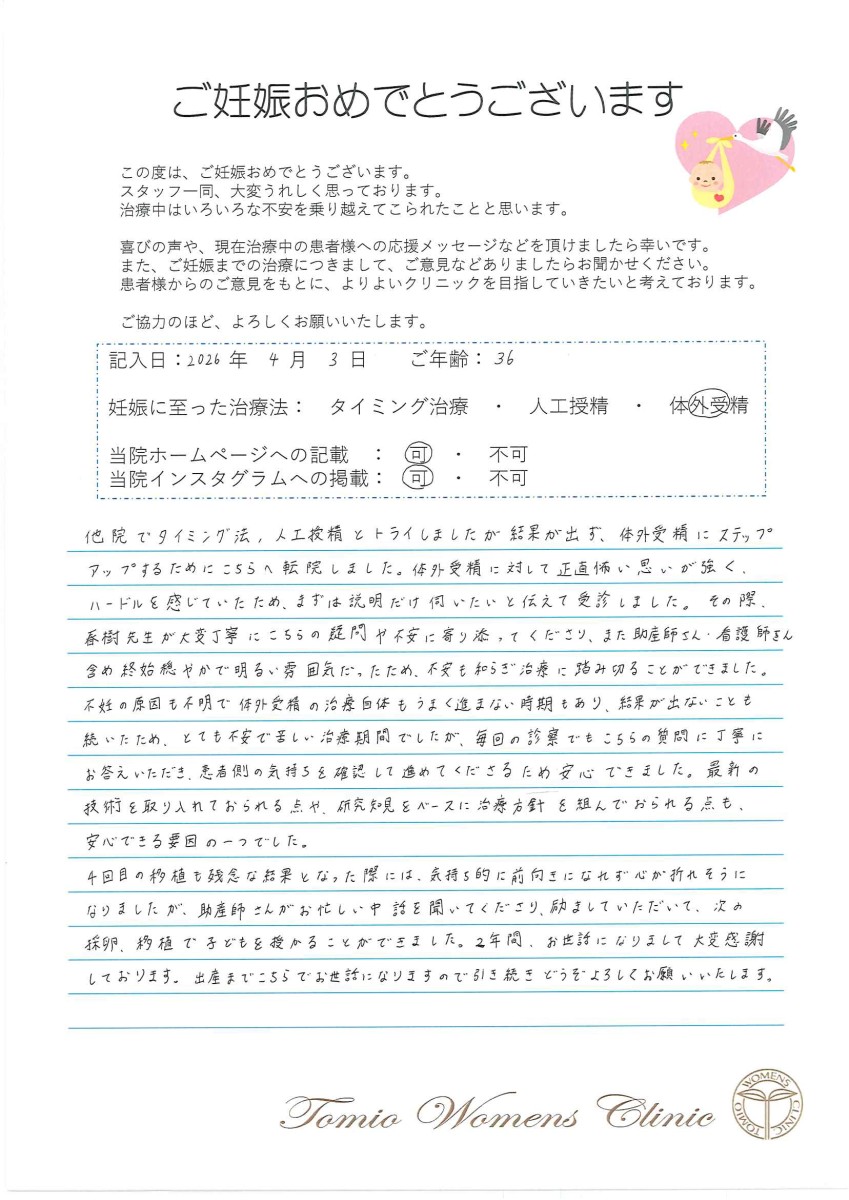 ご妊娠おめでとうございます
この度は、ご妊娠おめでとうございます。
スタッフ一同、大変うれしく思っております。
治療中はいろいろな不安を乗り越えてこられたことと思います。
喜びの声や、現在治療中の患者様への応援メッセージなどを頂けましたら幸いです。
また、ご妊娠までの治療につきまして、ご意見などありましたらお聞かせください。
患者様からのご意見をもとに、よりよいクリニックを目指していきたいと考えております。
ご協力のほど、よろしくお願いいたします。
記入日：2026 年 4 月 3 日 ご年齢：36
妊娠に至った治療法： タイミング治療 ・ 人工授精 ・ 体外受精
当院ホームページへの記載 ： 可 ・ 不可
当院インスタグラムへの掲載： 可 ・ 不可
他院でタイミング法，人工授精とトライしましたが結果が出ず、体外受精にステップ
アップするためにこちらへ転院しました。体外受精に対して正直怖い思いが強く、
ハードルを感じていたため、まずは説明だけ伺いたいと伝えて受診しました。その際、
春樹先生が大変丁寧にこちらの疑問や不安に寄り添ってくださり、また助産師さん・看護師さん
含め終始穏やかで明るい雰囲気だったため、不安も和らぎ治療に踏み切ることができました。
不妊の原因も不明で体外受精の治療自体もうまく進まない時期もあり、結果が出ないことも
続いたため、とても不安で苦しい治療期間でしたが、毎回の診察でもこちらの質問に丁寧に
お答えいただき、患者側の気持ちを確認して進めてくださるため安心できました。最新の
技術を取り入れておられる点や、研究知見をベースに治療方針を組んでおられる点も、
安心できる要因の一つでした。
4回目の移植も残念な結果となった際には、気持ち的に前向きになれず心が折れそうに
なりましたが、助産師さんがお忙しい中話を聞いてくださり、励ましていただいて、次の
採卵、移植で子どもを授かることができました。2年間、お世話になりまして大変感謝
しております。出産までこちらでお世話になりますので引き続きどうぞよろしくお願いいたします。
Tomio Womens Clinic
TOMIO WOMENS CLINIC